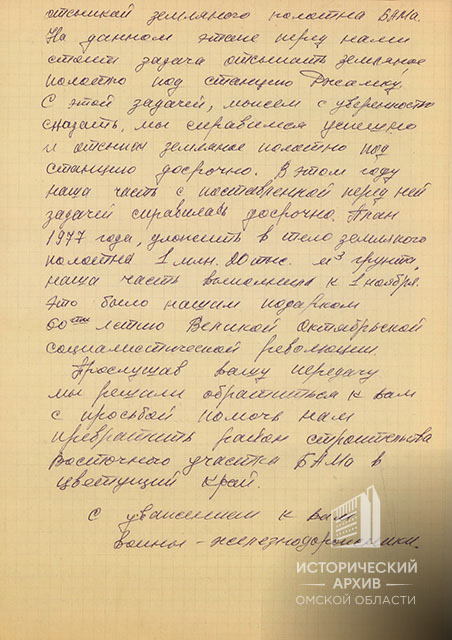 отсыпкой земляного полотна БАМа.
На данном этапе перед нами
стоит задача отсыпать земляное
полотно под станцию Джамку.
С этой задачей, можем с уверенностью
сказать, мы справимся успешно
и отсыпем земляное полотно под
станцию досрочно. В этом году
наша часть с поставленной перед ней
задачей справилась досрочно. План
1977 года, уложить в тело земляного
полотна 1 млн. 20 тыс. м³ грунта,
наша часть выполнила к 1 ноября.
Это было нашим подарком
60ти летию Великой Октябрьской
социалистической революции.
Прослушав вашу передачу
мы решили обратиться к вам
с просьбой помочь нам
превратить район строительства
Восточного участка БАМа в
цветущий край.
С уважением к вам
воины-железнодорожники.
ИСТОРИЧЕСКИЙ
АРХИВ
ОМСКОЙ ОБЛАСТИ